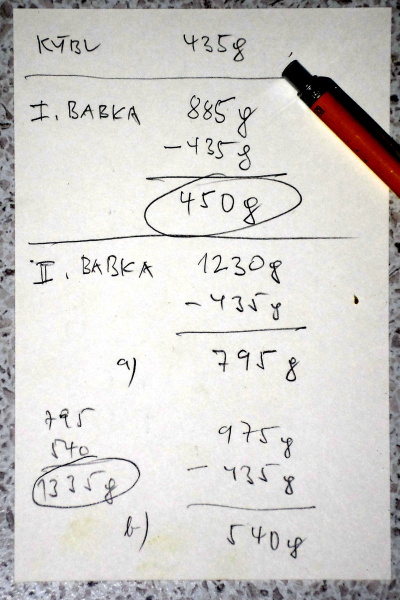 KÝBL 435g
I. BABKA 885g
-435g
450g
II. BABKA 1230g
-435g
a) 795g
795
540
1335g
975g
-435g
b) 540g